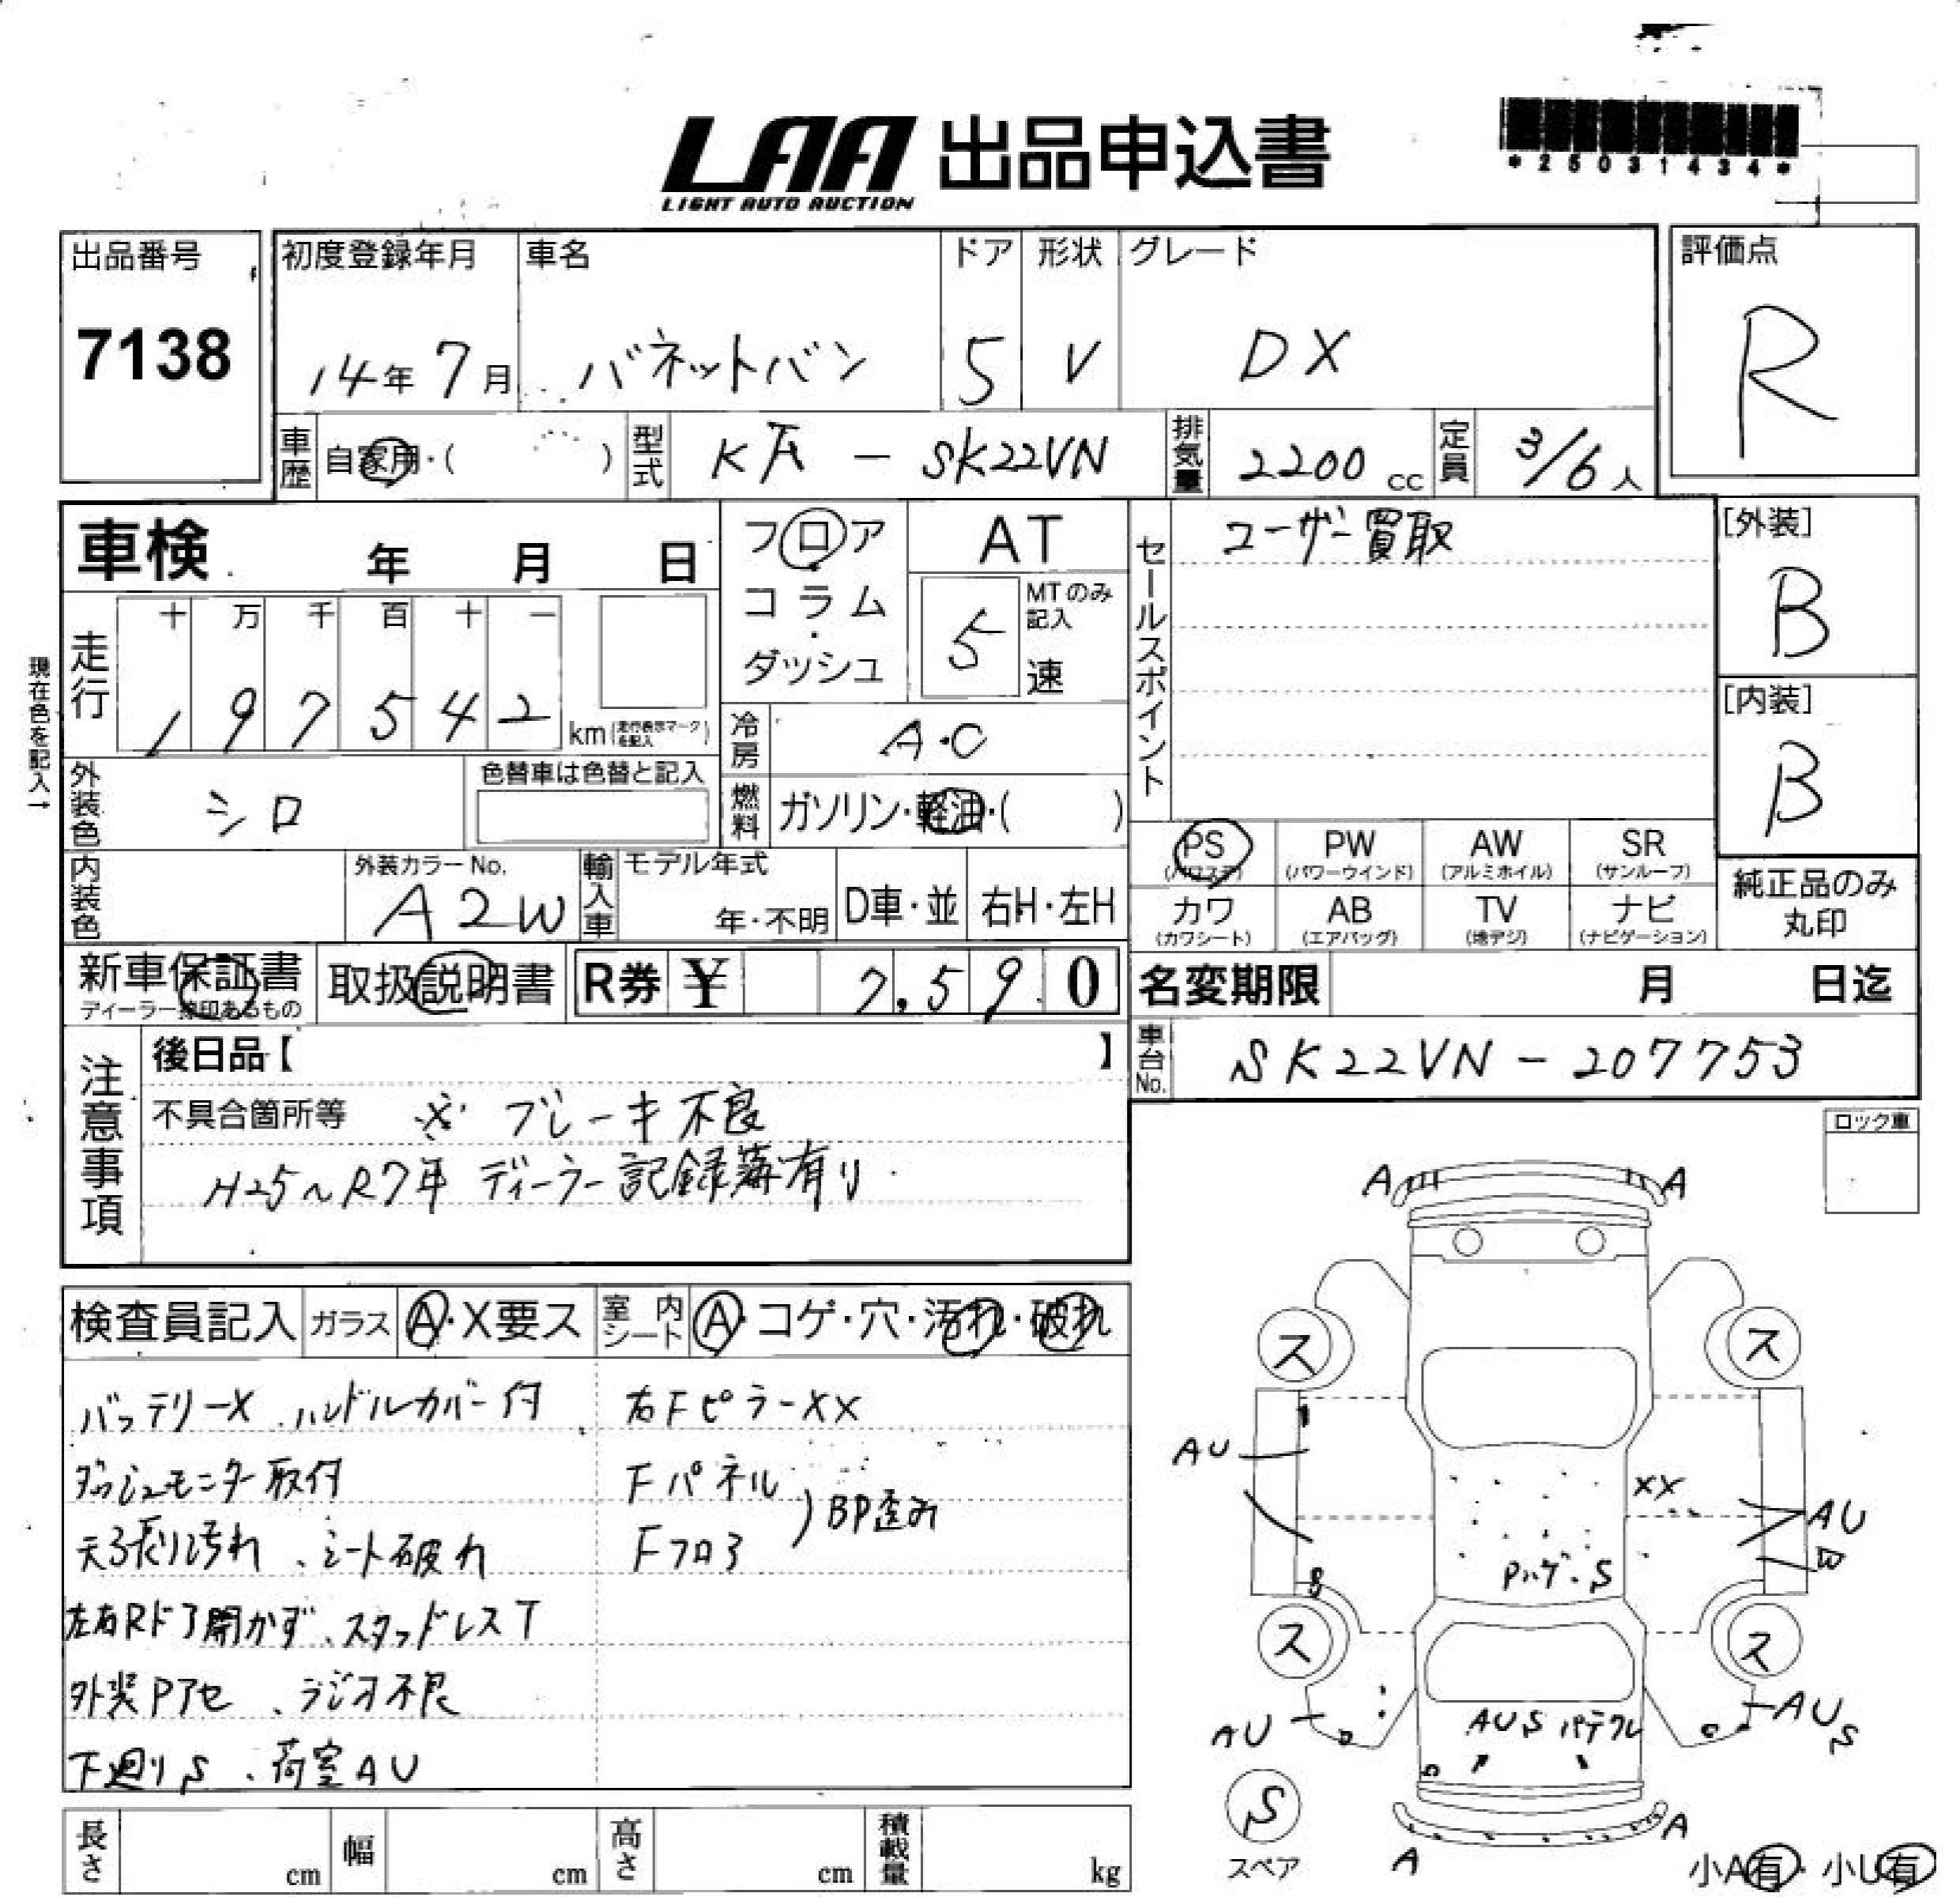 LAA 出品申込書
LIGHT AUTO AUCTION
*25031434*
出品番号
7138
初度登録年月
14年 7月
車名
バネットバン
ドア
5
形状
V
グレード
DX
評価点
R
車歴 自家用・( )
型式 KA - SK22VN
排気量 2200 cc
定員 3/6人
車検 年 月 日
フロア
コラム
ダッシュ
AT
MTのみ記入
5 速
セールスポイント
ユーザー買取
[外装]
B
[内装]
B
現在色を記入→
走行
十 万 千 百 十 一
1 9 7 5 4 2 km(走行表示マークを記入)
冷房 A・C
外装色 シロ
色替車は色替と記入
燃料 ガソリン・軽油・( )
PS (パワステ)
PW (パワーウインド)
AW (アルミホイル)
SR (サンルーフ)
カワ (カワシート)
AB (エアバッグ)
TV (地デジ)
ナビ (ナビゲーション)
純正品のみ
丸印
内装色
外装カラーNo.
A2W
輸入車
モデル年式
年・不明
D車・並
右H・左H
新車保証書
ディーラー捺印あるもの
取扱説明書
R券 ¥ 7,590
名変期限 月 日迄
車台No. SK22VN-207753
注意事項
後日品【 】
不具合箇所等 ※ ブレーキ不良
H25~R7年 ディーラー記録簿有り
ロック車
検査員記入
ガラス A・X要ス
室内シート A・コゲ・穴・汚れ・破れ
バッテリーX、ハンドルカバー付
ダッシュモニター取付
天張り汚れ、シート破れ
左右Rドア開かず、スタッドレスT
外装Pアセ、ラジオ不良
下廻りS、荷室AU
右FピラーXX
Fパネル
Fフロア
BP歪み
A
A
ス
ス
AU
XX
AU
Pハゲ・S
S
ス
ス
AU
AUS
AUS パテワレ
S
スペア
A
A
小A有・小U有
長さ cm
幅 cm
高さ cm
積載量 kg